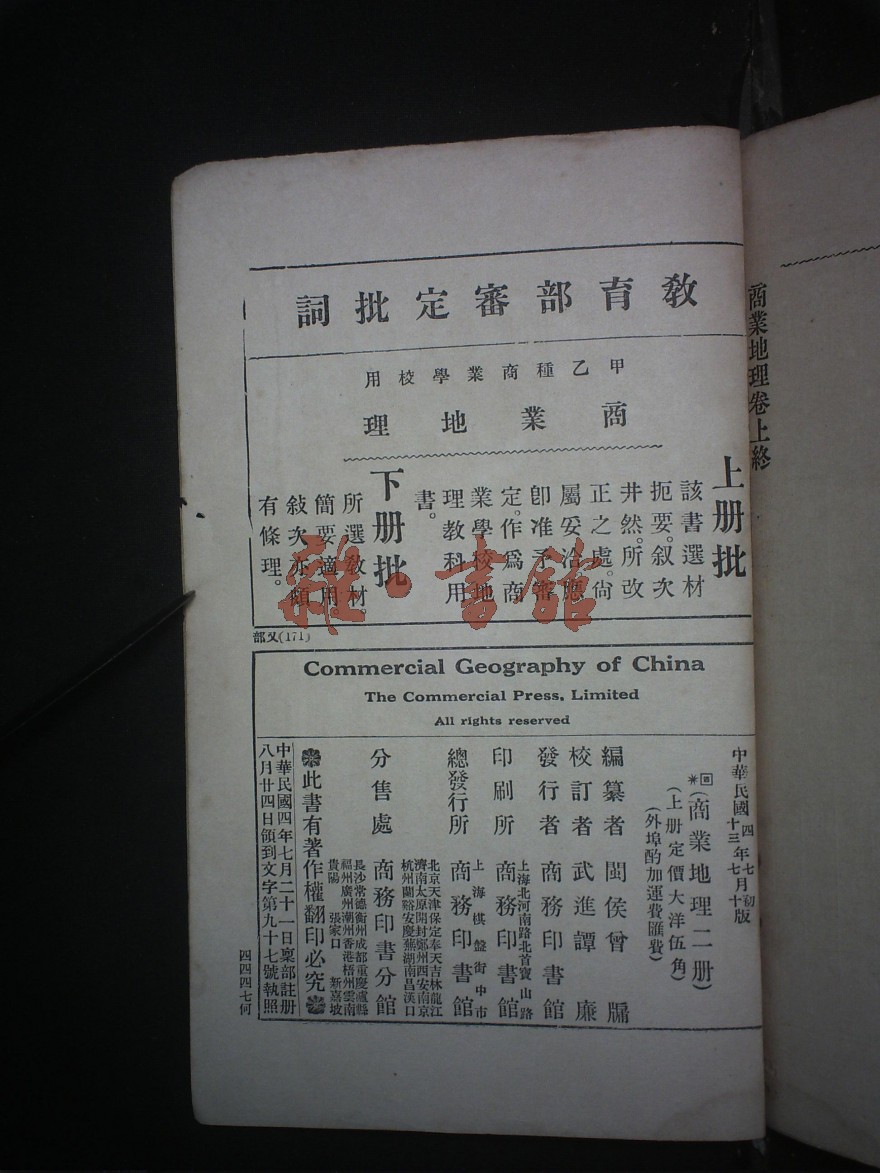 商業地理卷上終
教育部審定批詞
甲乙種商業學校用
商業地理
上册批
該書選材
扼要。叙次
井然。所改
正之處。尙
屬妥洽應
卽准予審
定。作爲商
業學校地
理教科用
書。
下册批
所選教材。
簡要適用。
敍次亦頗
有條理。
部又(171)
Commercial Geography of China
The Commercial Press, Limited
All rights reserved
中華民國四年七月初版
十三年七月十版
(商業地理二册)
(上册定價大洋伍角)
(外埠酌加運費匯費)
編纂者 閩侯曾牖
校訂者 武進譚廉
發行者 商務印書館
印刷所 上海北河南路北首寶山路 商務印書館
總發行所 上海棋盤街中市 商務印書館
分售處 商務印書分館
北京天津保定奉天吉林龍江
濟南太原開封鄭州西安南京
杭州蘭谿安慶蕪湖南昌漢口
長沙常德衡州成都重慶瀘縣
福州廣州潮州香港梧州雲南
貴陽 張家口 新嘉坡
此書有著作權翻印必究
中華民國四年七月二十一日稟部註册
八月廿四日領到文字第九十七號執照
四四四七何
雜·書館